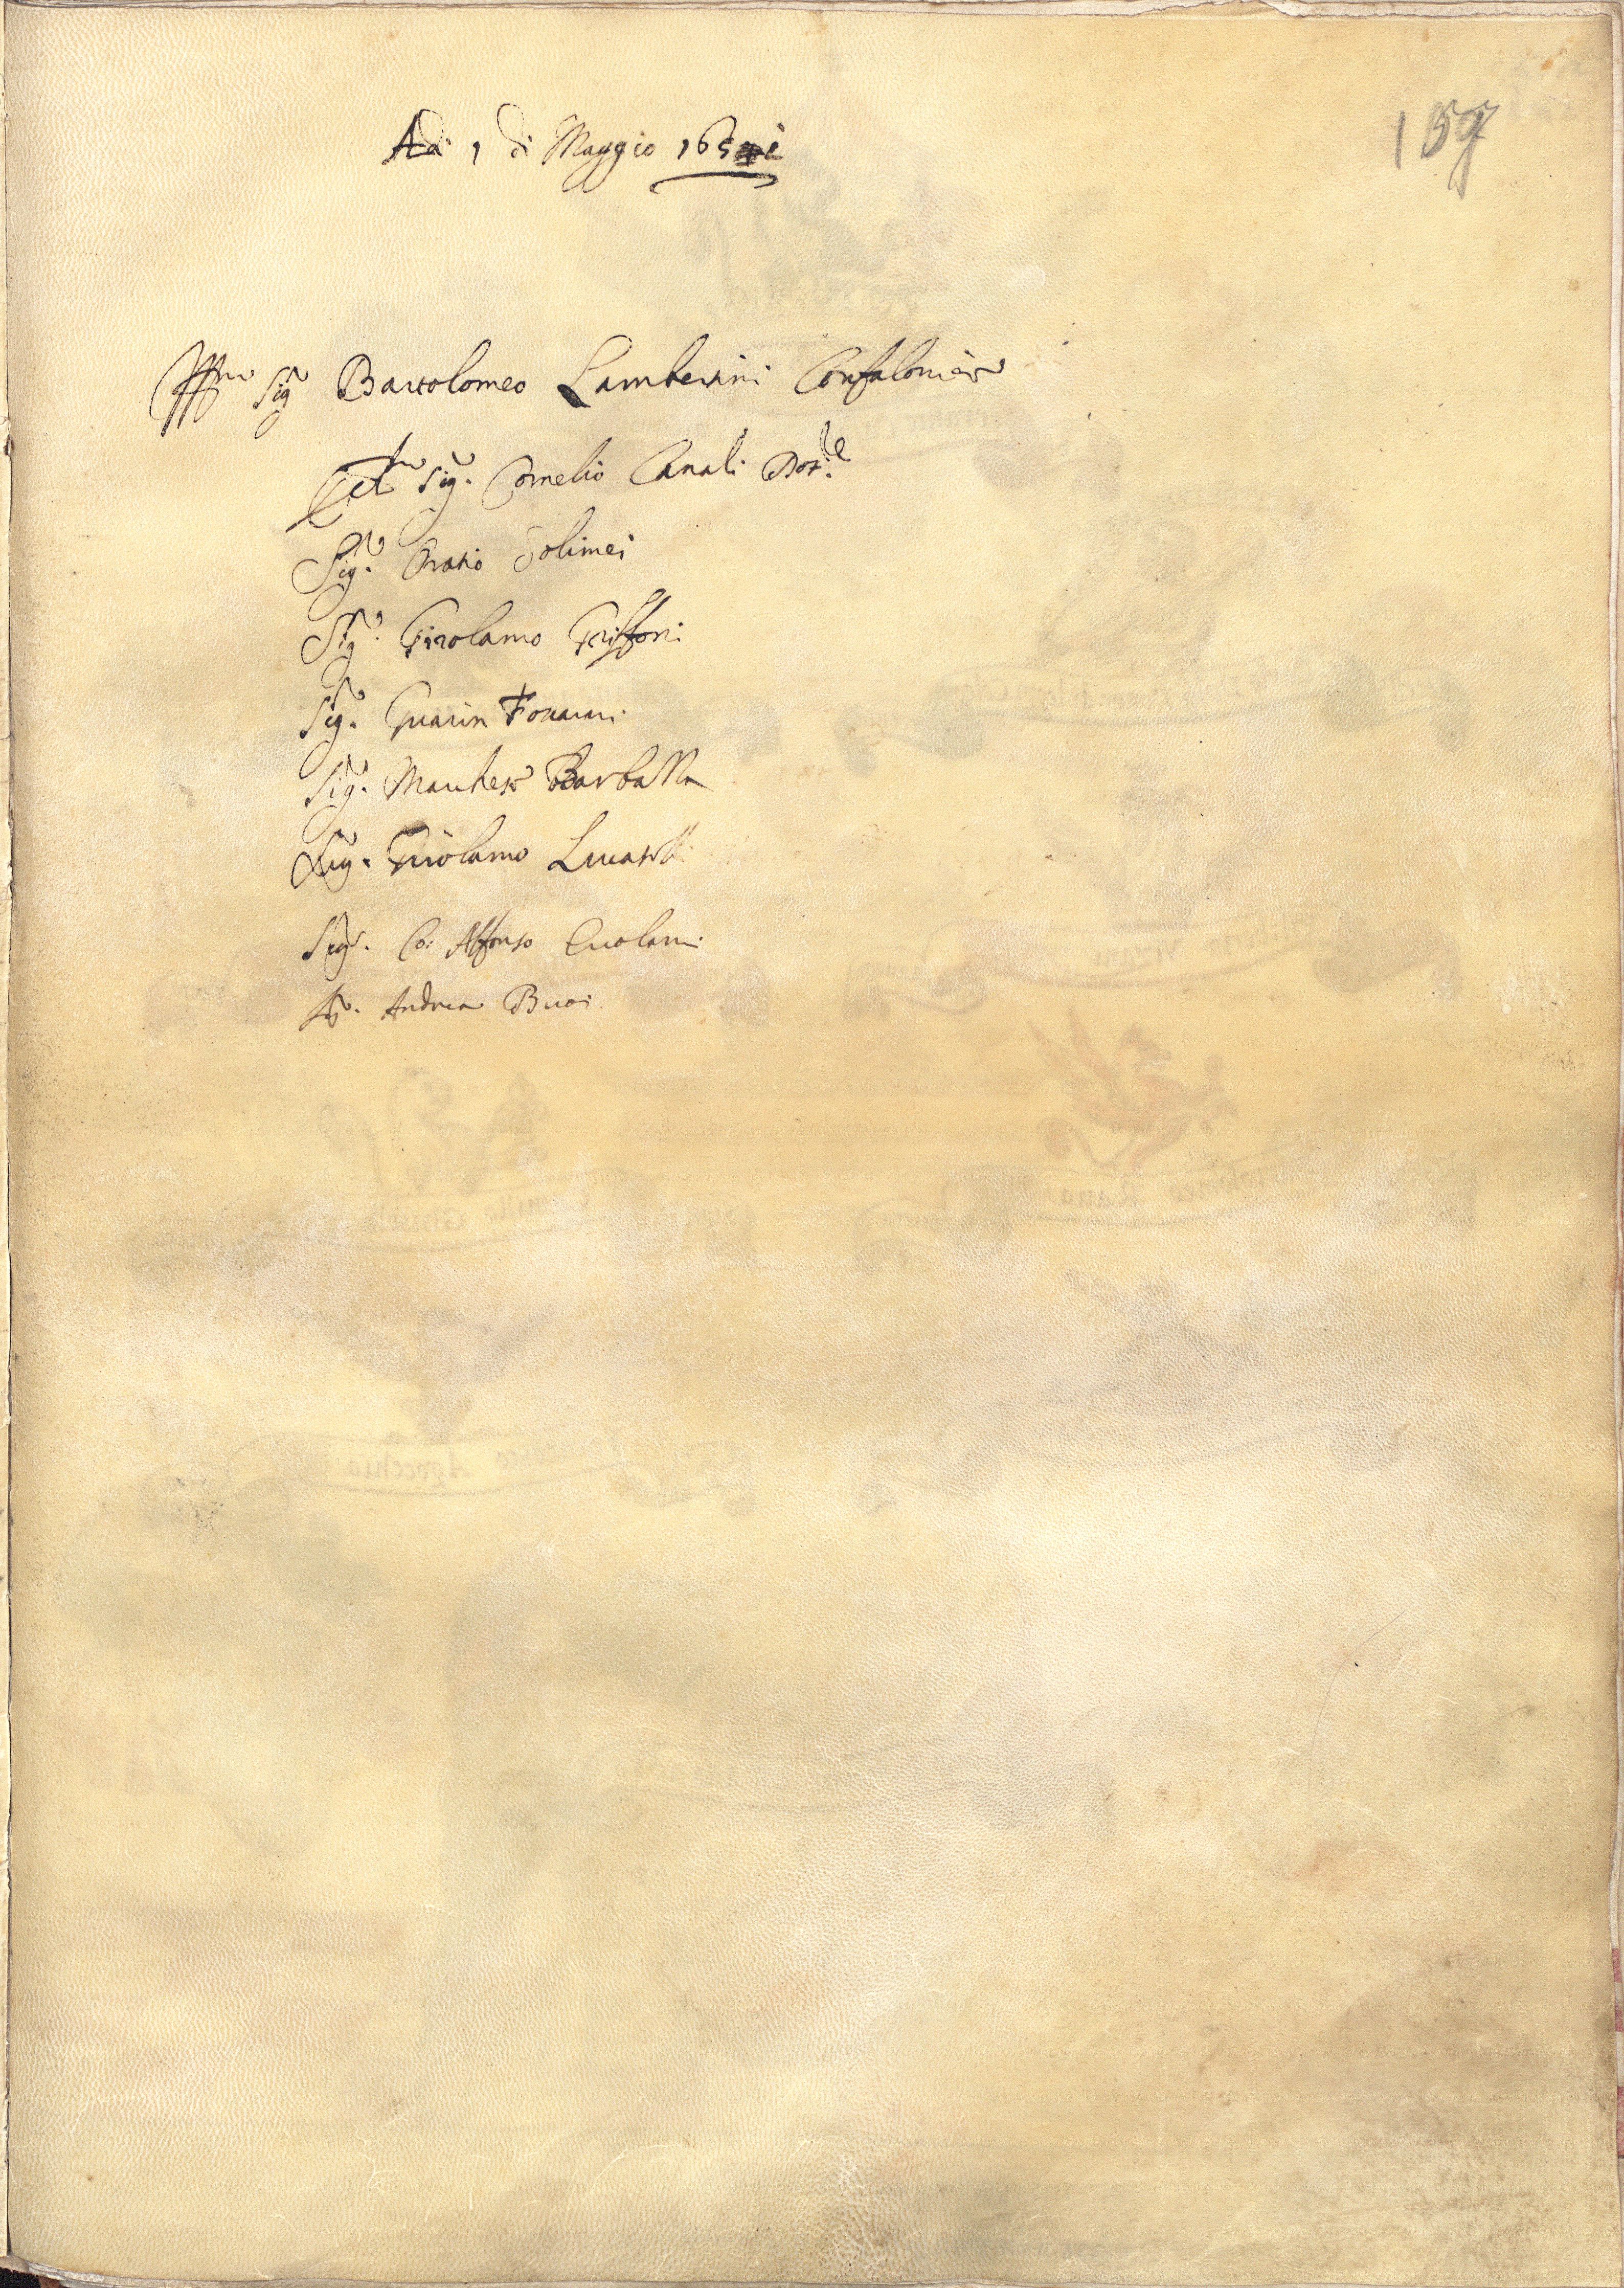 159
Adi 1 di Maggio 165
Ill.mo Sig.r Bartolomeo Lambertini Confaloniero
Ecc.te Sig.r Cornelio Canali Dot.le
Sig.r Oratio Tolimei
Sig.r Girolamo Griffoni
Sig.r Guarin Foscarari
Sig.r Marchese Barbazza
Sig.r Girolamo Lucatelli
Sig.r Co: Alfonso Ercolani
Sig.r Andrea Buoi